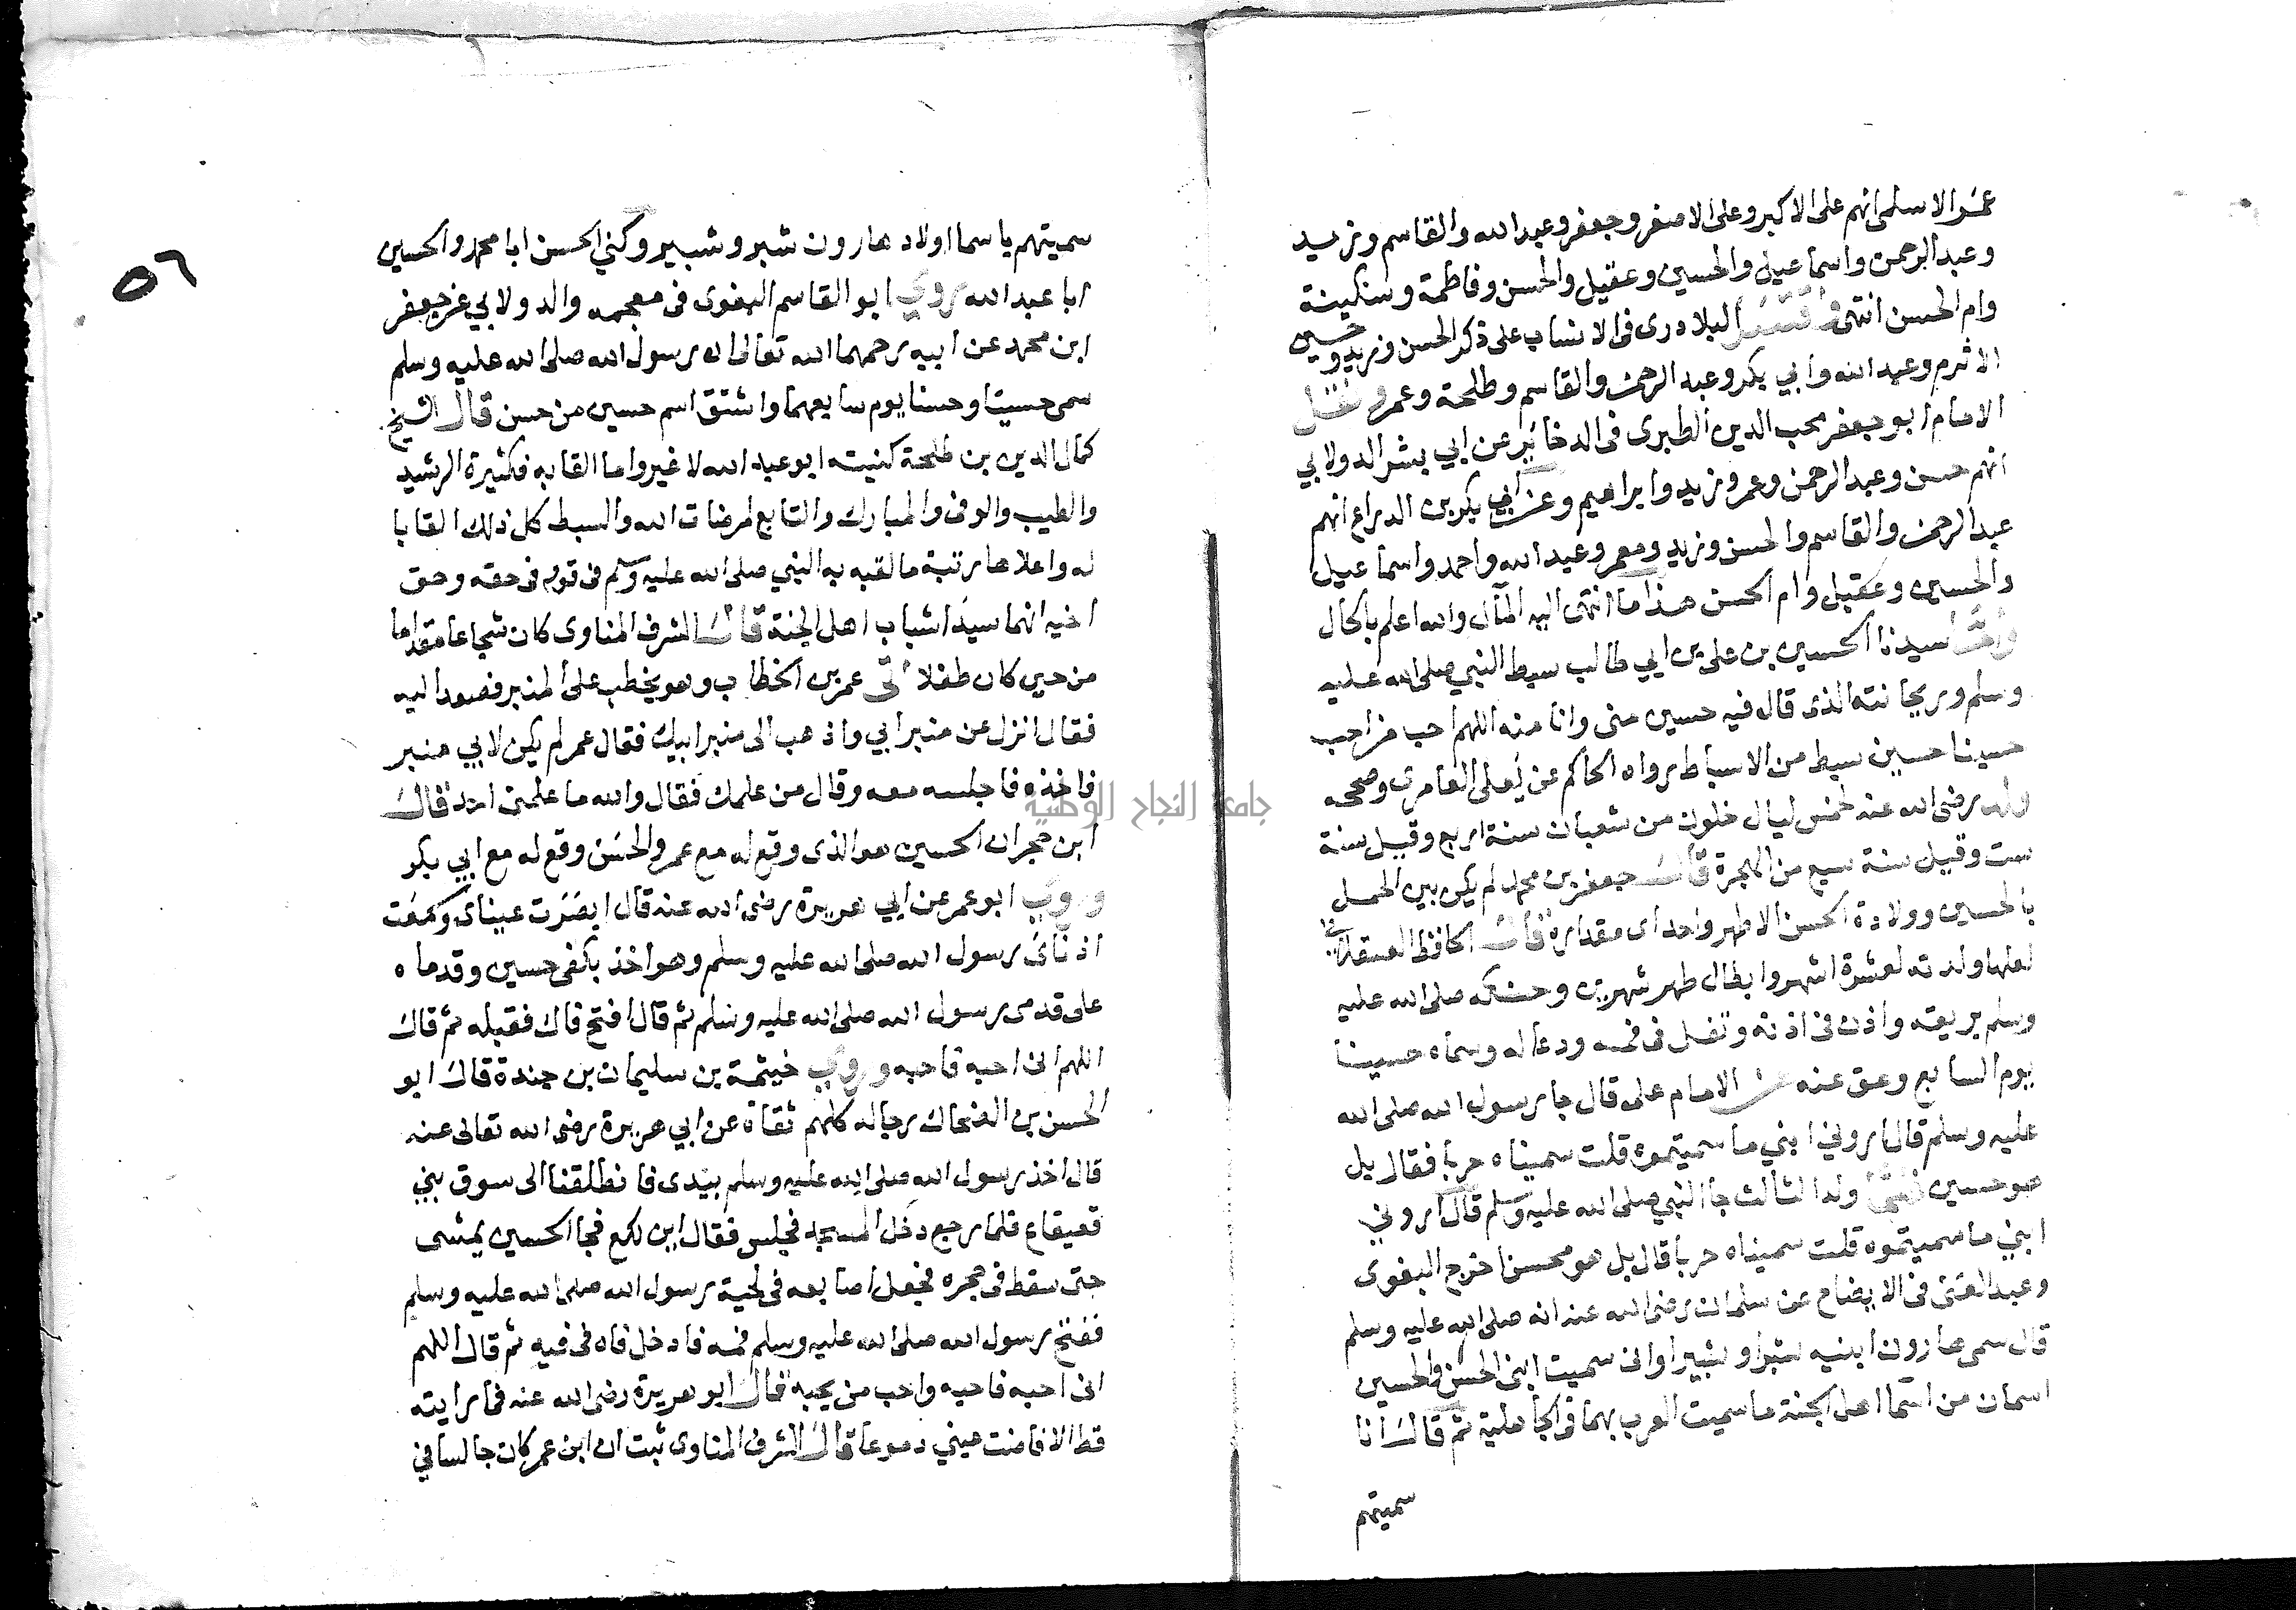 عمر الاسلمى انهم على الاكبر وعلى الاصغر وجعفر وعبد الله والقاسم وزيد
وعبد الرحمن واسماعيل والحسين وعقيل والحسن وفاطمة وسكينة
وام الحسن انتهى البلادرى فى الانساب على ذكر الحسن وزيد وحسين
الاثرم وعبد الله وابي بكر وعبد الرحمن والقاسم وطلحة وعمر ونقل
الامام ابو جعفر محب الدين الطبرى فى الدخائر عن ابي بشر الدولابي
انهم حسن وعبد الرحمن وعمر وزيد وابراهيم وعن ابي بكر بن الدراع انهم
عبد الرحمن والقاسم والحسن وزيد ومعمر وعبد الله واحمد واسماعيل
والحسين وعقيل وام الحسن هذا ما انتهى اليه المآل والله اعلم بالحال
واما سيدنا الحسين بن على بن ابي طالب سبط النبي صلى الله عليه
وسلم وريحانته الذى قال فيه حسين منى وانا منه اللهم احب من احب
حسينا حسين سبط من الاسباط رواه الحاكم عن يعلى العامرى وصححه
ولد رضى الله عنه لخمس ليال خلون من شعبان سنة اربع وقيل سنة
ست وقيل سنة سبع من الهجرة قال جعفر بن محمد لم يكن بين الحمل
بالحسين وولادة الحسن الا طهر واحد اى مقداره قال الحافظ العسقلاني
لعلها ولدته لعشرة اشهر وابطال طهر شهرين وحنكه صلى الله عليه
وسلم بريقه واذن فى اذنه وتفل فى فمه ودعا له وسماه حسينا
يوم السابع وعق عنه عن الامام على قال جا رسول الله صلى الله
عليه وسلم قال اروني ابني ما سميتموه قلت سميناه حربا فقال بل
هو حسين فلما ولد الثالث جا النبي صلى الله عليه وسلم قال اروني
ابني ما سميتموه قلت سميناه حربا قال بل هو محسن اخرج البغوى
وعبد الغنى فى الايضاح عن سلمان رضى الله عنه انه صلى الله عليه وسلم
قال سمى هارون ابنيه شبرا وشبيرا وانى سميت ابنى الحسن والحسين
اسمان من اسما اهل الجنة ما سميت العرب بهما فى الجاهلية ثم قال انا
سميتهم
٥٦
سميتهم باسما اولاد هارون شبر وشبير وكني الحسن ابا محمد والحسين
ابا عبد الله روي ابو القاسم البغوى فى معجمه والدولابي عن جعفر
ابن محمد عن ابيه رحمهما الله تعالى ان رسول الله صلى الله عليه وسلم
سمى حسينا وحسنا يوم سابعهما واشتق اسم حسين من حسن قال الشيخ
كمال الدين بن طلحة كنيته ابو عبد الله لا غير واما القابه فكثيرة الرشيد
والطيب والوفى والمبارك والتابع لمرضات الله والسبط كل ذلك القابا
له واعلاها رتبة ما لقبه به النبي صلى الله عليه وسلم فى قوله فى حقه وحق
اخيه انهما سيدا شباب اهل الجنة قال الشرف المناوى كان شجاعا مقداما
من حين كان طفلا اتى عمر بن الخطاب وهو يخطب على المنبر فصعد اليه
فقال انزل عن منبر ابي واذهب الى منبر ابيك فقال عمر لم يكن لابي منبر
فاخذه فاجلسه معه وقال من علمك فقال والله ما علمنى احد قال
جامعة النجاح الوطنية
ابن حجر ان الحسين هو الذى وقع له مع عمر والحسن وقع له مع ابي بكر
وروي ابو عمر عن ابي هريرة رضى الله عنه قال ابصرت عيناى وسمعت
اذناى رسول الله صلى الله عليه وسلم وهو اخذ بكفى حسين وقدماه
على قدمى رسول الله صلى الله عليه وسلم ثم قال افتح فاك فقبله ثم قال
اللهم انى احبه فاحبه وروي خيثمة بن سليمان بن جندة قال ابو
الحسن بن الضحاك رجاله كلهم ثقاة عن ابي هريرة رضى الله تعالى عنه
قال اخذ رسول الله صلى الله عليه وسلم بيدى فانطلقنا الى سوق بني
قعيقاع فلما رجع دخل المسجد فجلس فقال اين لكع فجا الحسين يمشى
حتى سقط فى حجره فجعل اصابعه فى لحية رسول الله صلى الله عليه وسلم
ففتح رسول الله صلى الله عليه وسلم فمه فادخل فاه فى فيه ثم قال اللهم
انى احبه فاحبه واحب من يحبه قال ابو هريرة رضى الله عنه فما رايته
قط الا فاضت عيني دموعا قال الشرف المناوى ثبت ان ابن عمر كان جالسا في